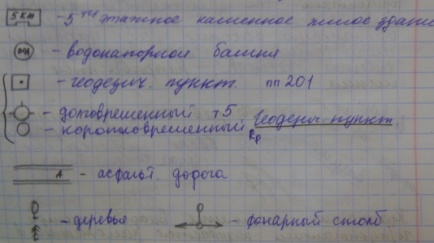 5КЖ - 5ти этажное каменное жилое здание
- водонапорная башня
- геодезич. пункт пп201
- долговременный т5 Геодезич пункт
- коротковременный Rp
А - асфальт. дорога
- деревья - фонарный столб